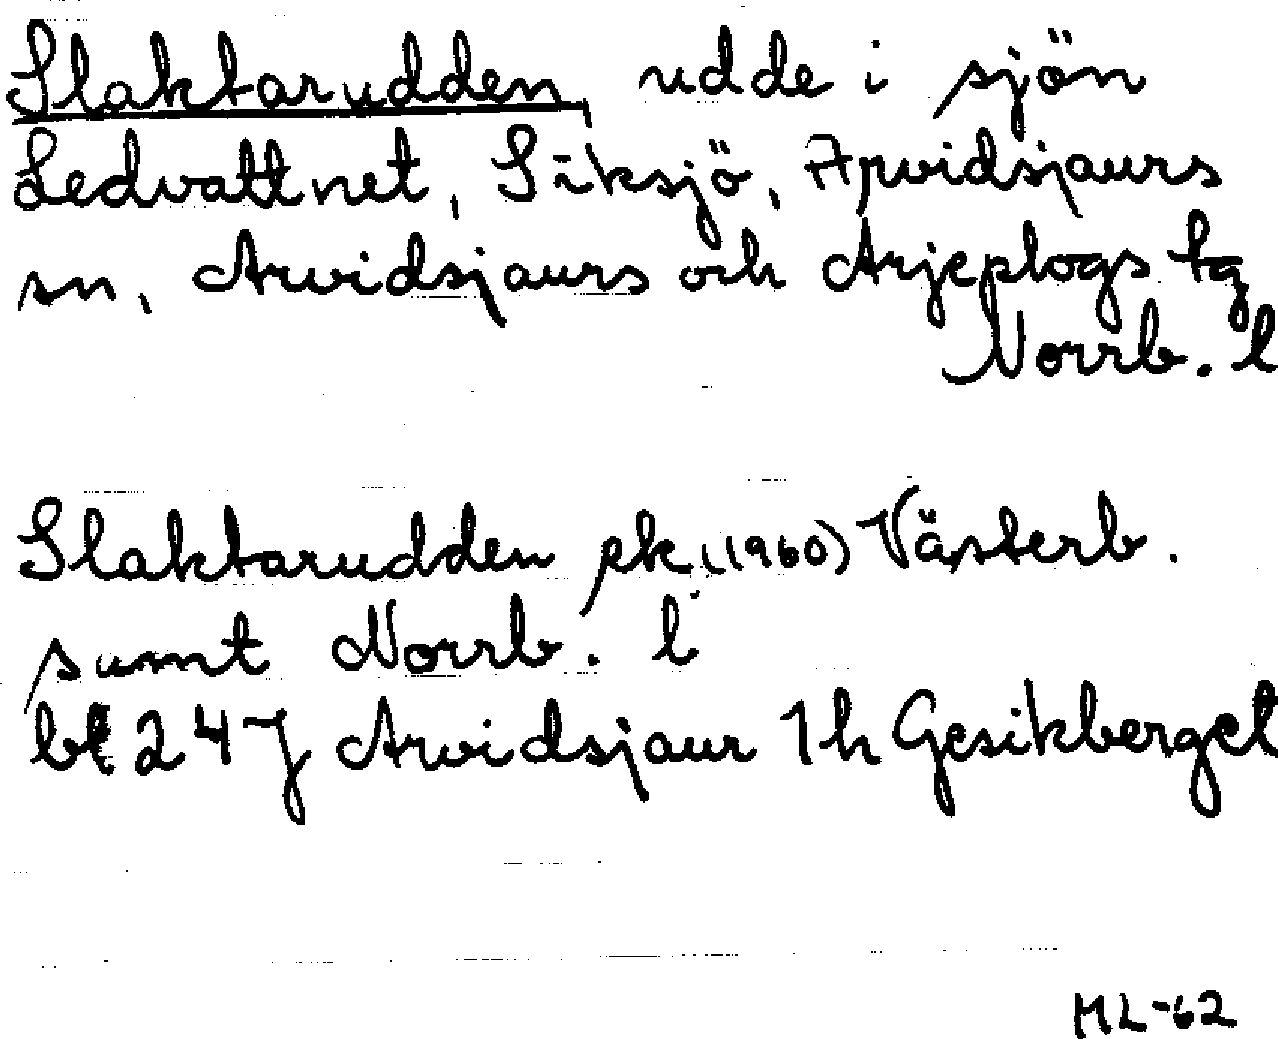 Slaktarudden, udde i sjön
Ledvattnet, Siksjö, Arvidsjaurs
sn, Arvidsjaurs och Arjeplogs tg
Norrb. l
Slaktarudden pk (1960) Västerb.
samt Norrb. l
bl 24 J Arvidsjaur 1h Gesikberget
ML-62